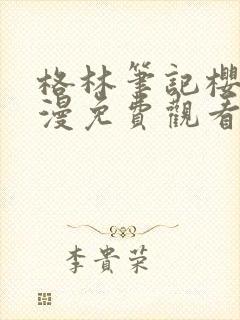 格林筆記櫻
漫免費觀看
李貴荣